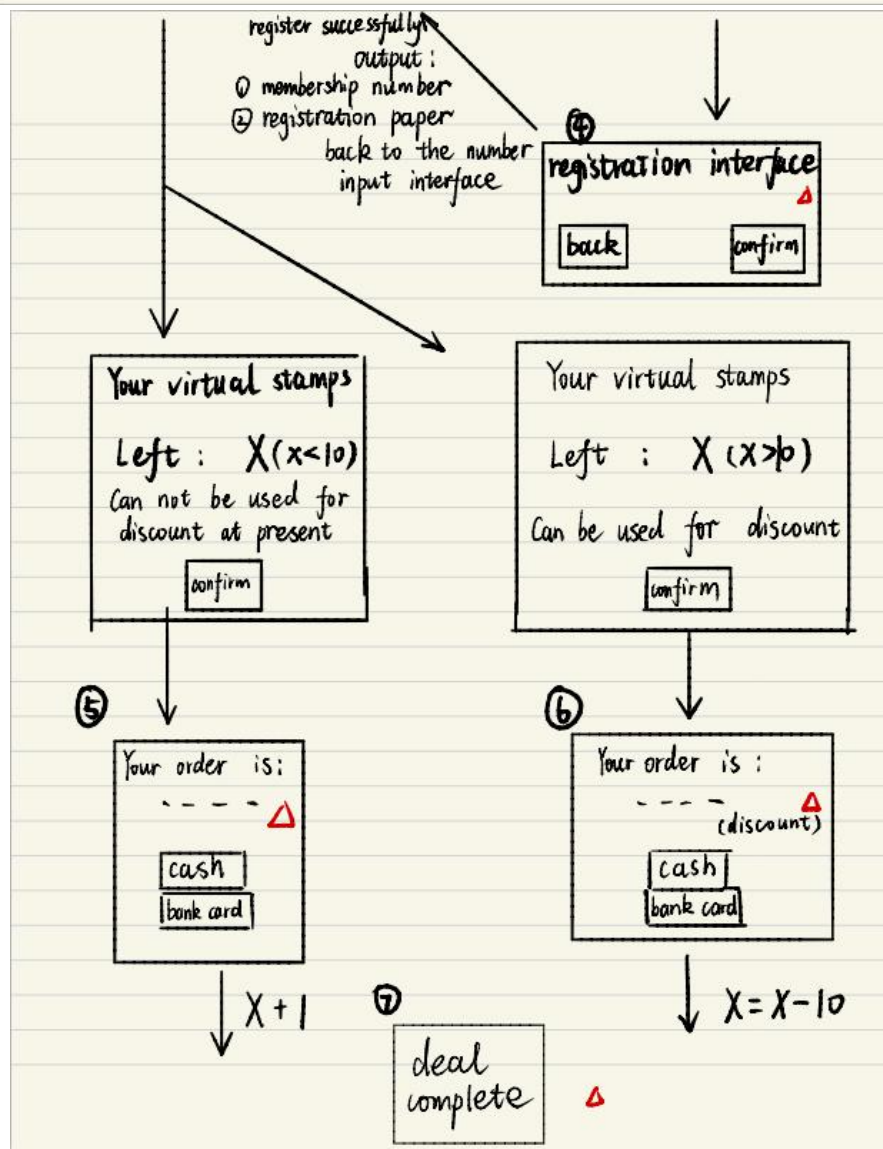 register successfully
output :
① membership number
② registration paper
back to the number
input interface
④
registration interface
back
confirm
Your virtual stamps
Left : X (x<10)
Can not be used for
discount at present
confirm
Your virtual stamps
Left : X (X>10)
Can be used for discount
confirm
⑤
Your order is :
cash
bank card
X + 1
⑥
Your order is :
(discount)
cash
bank card
X = X - 10
⑦
deal
complete